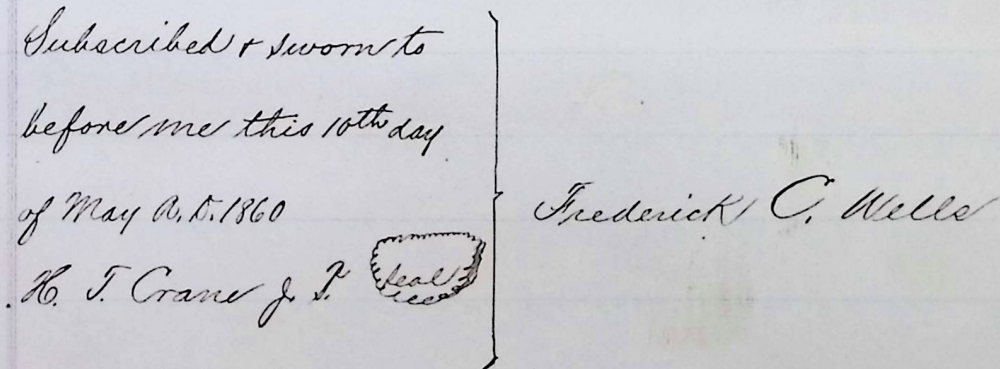 Subscribed & sworn to
before me this 10th day
of May A.D. 1860
H. T. Crane J. P. seal
Frederick C. Wells